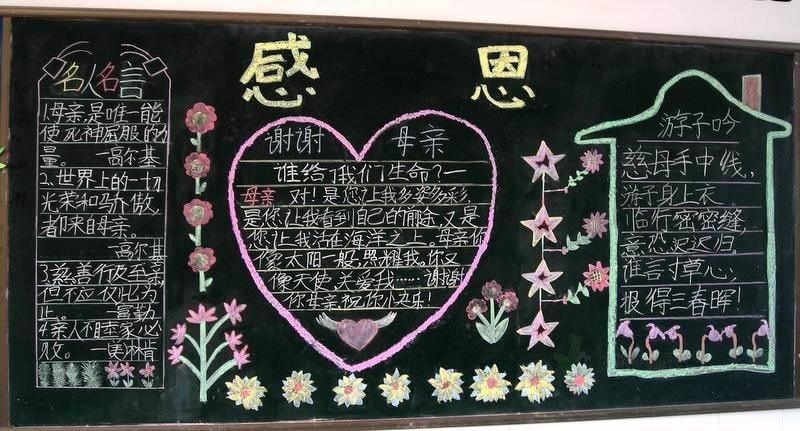 感 恩
名人名言
1母亲,是唯一能
使死神屈服的力
量。 —高尔基
2、世界上的一切
光荣和骄傲,
都来自母亲。
高尔基
3慈善行及至亲
但不应仅此为
止。 —富勒
4亲人不睦家必
败。 —美林肯
谢谢 母亲
谁给了我们生命?—
母亲 对!是您让我多姿多彩,
是您让我看到自己的 又是
您让我活在海洋之上。母亲你
像太阳一般,照耀我,你又
像天使,关爱我……谢谢
你母亲,祝你 乐!
游子吟
慈母手中线,
游子身上衣。
临行密密缝,
意恐迟迟归。
谁言寸草心,
报得三春晖!